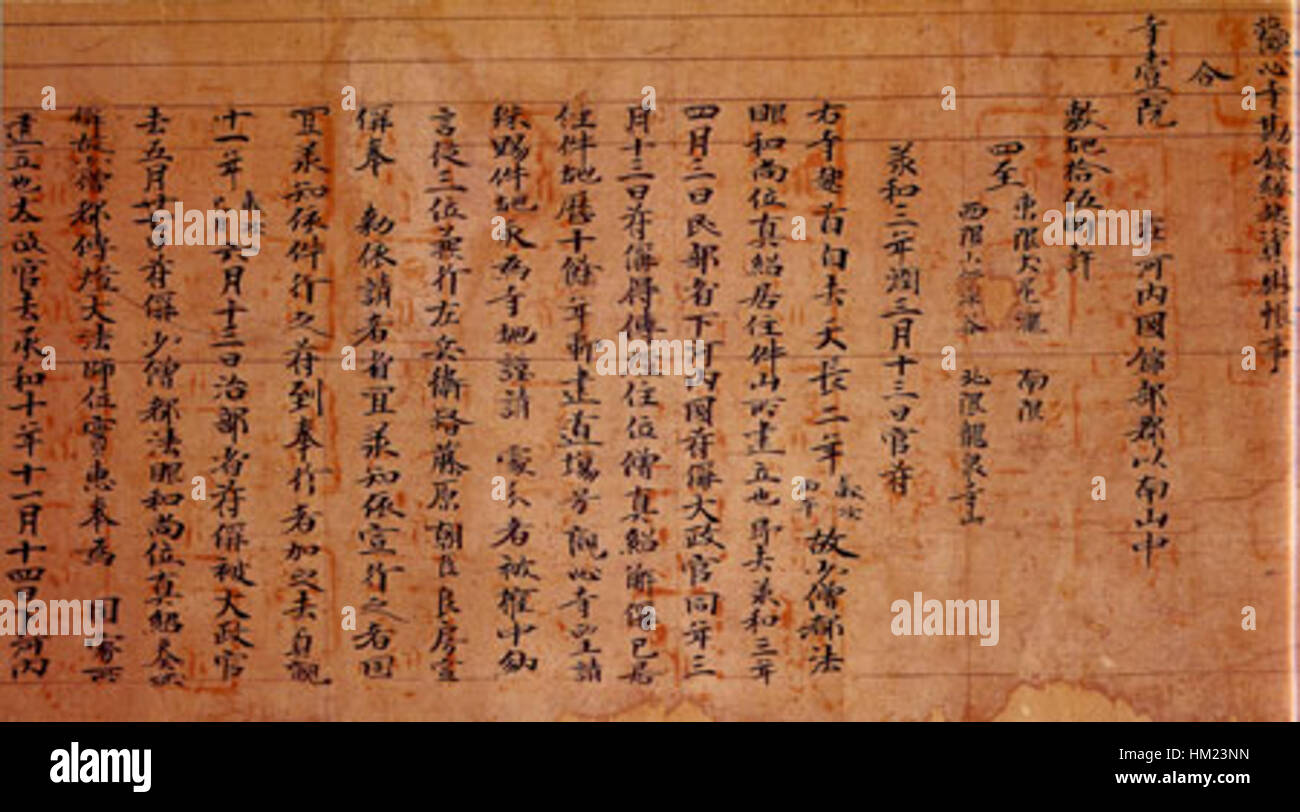 觀心寺勘録縁起資財帳事
合
寺壹院
在河内國錦部郡以南山中
敷地拾伍町許
四至 東限大尾 南限
西限 谷 北限龍泉寺山
承和三年潤三月十三日官符
右寺 去天長二年 故少僧都法
眼和尚位真紹居住件山所建立也即去承和三年
四月二日民部省下河内國符偁大政官同年三
月十三日符偁得傳燈住位僧真紹牒偁己居
住件地歷十餘年漸建道場号觀心寺望請
殊賜件地永為寺地謹請 處分者被權中納
言從三位兼行左兵衛督藤原朝臣良房宣
偁奉 勅依請者省宜承知依宣行之者國
宜承知依件行之符到奉行者加之去貞觀
十一年 六月十三日治部省符偁被太政官
去五月廿 日符偁少僧都法眼和尚位真紹奏
偁故僧都傳燈大法師位實惠奉為 國家所
建立也太政官去承和十年十一月十四日下河内
alamy
alamy stock photo
HM23NN
www.alamy.com